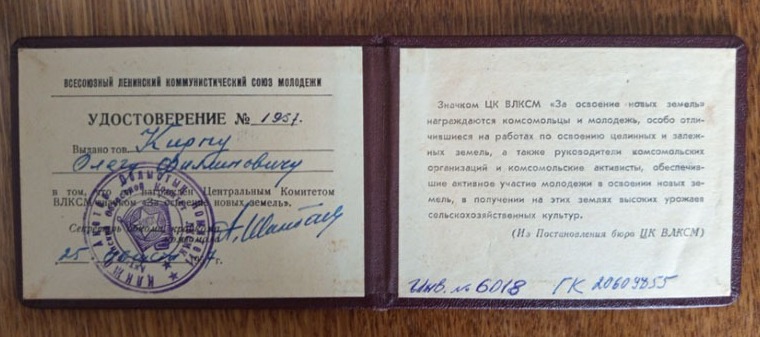 ВСЕСОЮЗНЫЙ ЛЕНИНСКИЙ КОММУНИСТИЧЕСКИЙ СОЮЗ МОЛОДЕЖИ
УДОСТОВЕРЕНИЕ № 1957.
Выдано тов.
Олегу
в том, что он награжден Центральным Комитетом
ВЛКСМ значком «За освоение новых земель».
Секретарь
комсомола
25
Значком ЦК ВЛКСМ «За освоение новых земель»
награждаются комсомольцы и молодежь, особо отли-
чившиеся на работах по освоению целинных и залеж-
ных земель, а также руководители комсомольских
организаций и комсомольские активисты, обеспечив-
шие активное участие молодежи в освоении новых зе-
мель, в получении на этих землях высоких урожаев
сельскохозяйственных культур.
(Из Постановления бюро ЦК ВЛКСМ)
Инв. № 6018 ГК 20609855